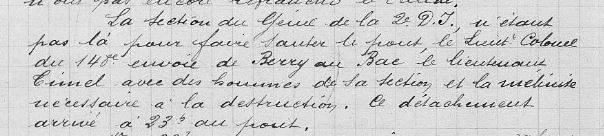 La section du Génie de la 2e D.I., n'étant
pas là pour faire sauter le pont, le Lieutt Colonel
du 148e envoie de Berry au Bac le lieutenant
Simel avec des hommes de sa section et la mélinite
nécessaire à la destruction. Ce détachement
arrive à 23h au pont.